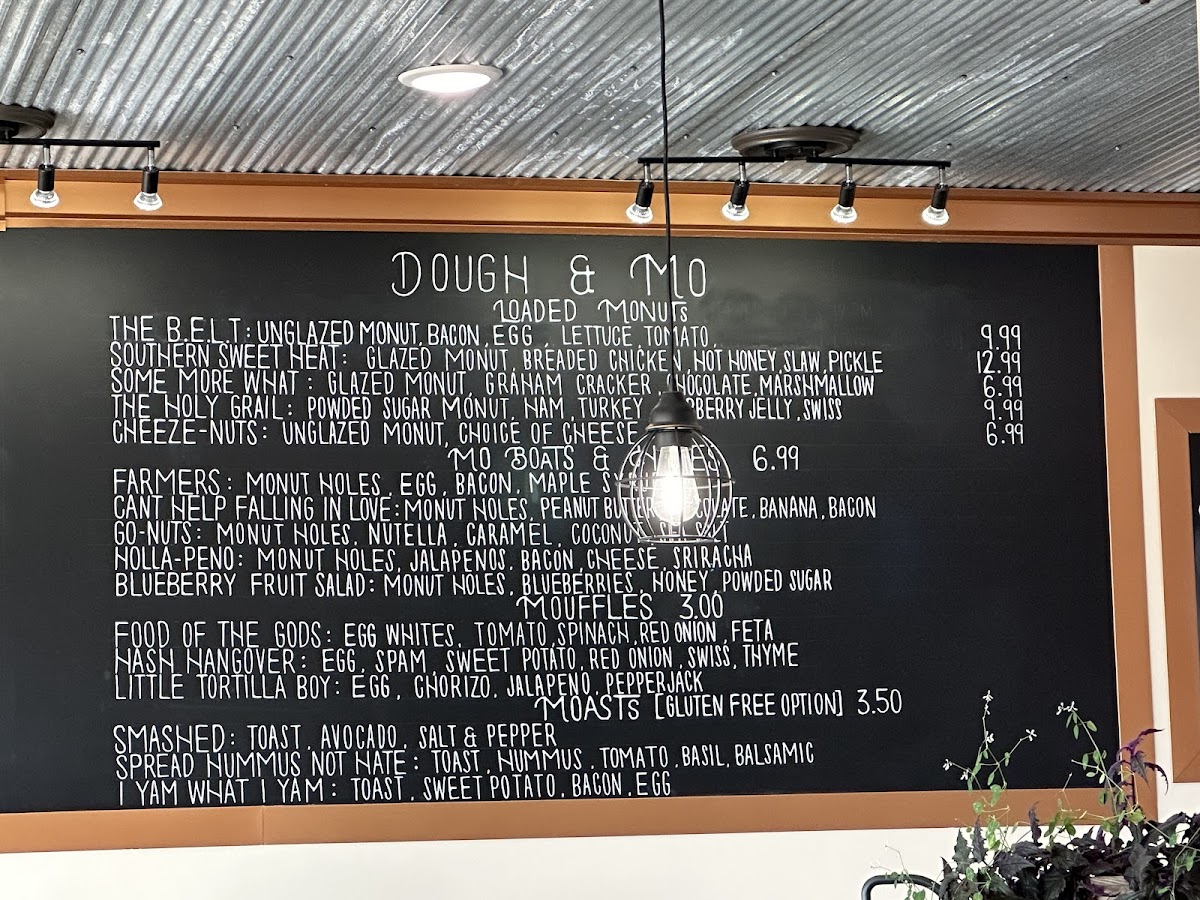 DOUGH & MO
LOADED MONUTS
THE B.E.L.T: UNGLAZED MONUT, BACON, EGG , LETTUCE, TOMATO, 9.99
SOUTHERN SWEET HEAT: GLAZED MONUT, BREADED CHICKEN, HOT HONEY, SLAW, PICKLE 12.99
SOME MORE WHAT: GLAZED MONUT, GRAHAM CRACKER, CHOCOLATE, MARSHMALLOW 6.99
THE HOLY GRAIL: POWDED SUGAR MONUT, HAM, TURKEY JELLY, SWISS 9.99
CHEEZE-NUTS: UNGLAZED MONUT, CHOICE OF CHEESE 6.99
MO BOATS & 6.99
FARMERS: MONUT HOLES, EGG, BACON, MAPLE
CANT HELP FALLING IN LOVE: MONUT HOLES, PEANUT BUTTER, CHOCOLATE, BANANA, BACON
GO-NUTS: MONUT HOLES, NUTELLA, CARAMEL, COCONUT
HOLLA-PENO: MONUT HOLES, JALAPENOS, BACON, CHEESE, SRIRACHA
BLUEBERRY FRUIT SALAD: MONUT HOLES, BLUEBERRIES, HONEY, POWDED SUGAR
MOUFFLES 3.00
FOOD OF THE GODS: EGG WHITES, TOMATO, SPINACH, RED ONION, FETA
HASH HANGOVER: EGG, SPAM, SWEET POTATO, RED ONION, SWISS, THYME
LITTLE TORTILLA BOY: EGG, CHORIZO, JALAPENO, PEPPERJACK
MOASTS [GLUTEN FREE OPTION] 3.50
SMASHED: TOAST, AVOCADO, SALT & PEPPER
SPREAD HUMMUS NOT HATE: TOAST, HUMMUS, TOMATO, BASIL, BALSAMIC
I YAM WHAT I YAM: TOAST, SWEET POTATO, BACON, EGG